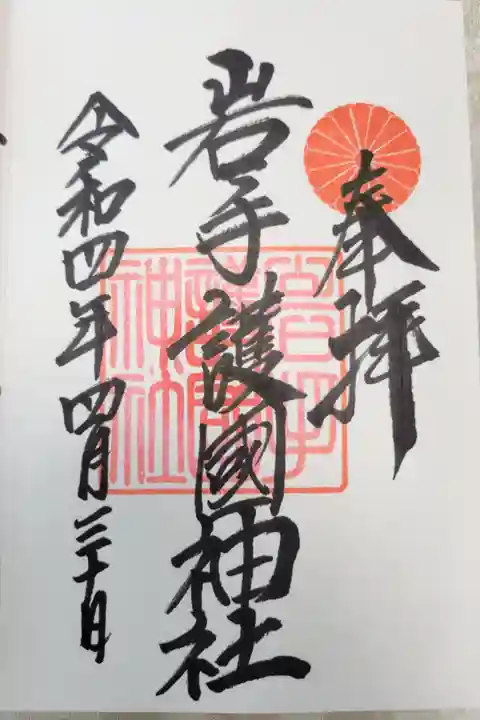 奉拝
岩手護國神社
令和四年四月三十日
岩手
護國
神社